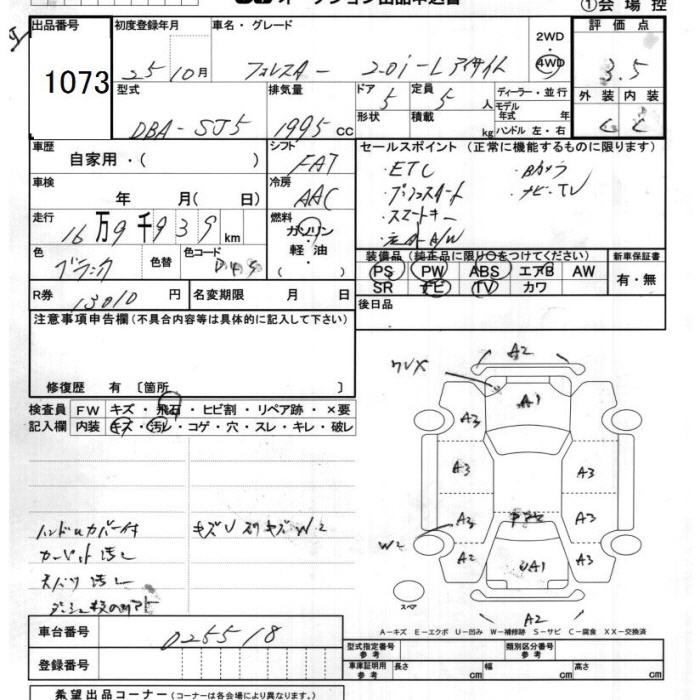 オークション出品申込書 ①会場控
出品番号 初度登録年月 車名・グレード 2WD・4WD 評価点
1073 25 10月 フォレスター 2.0i-Lアイサイト 3.5
型式 排気量 ドア 定員 ディーラー・並行 外装 内装
DBA-SJ5 1995cc 5 5人 モデル年式 年 C C
形状 積載 kg ハンドル 左・右
車歴 シフト セールスポイント(正常に機能するものに限ります)
自家用・( ) FAT
・ETC ・Bカメラ
車検 冷房 ・プッシュスタート ・ナビ・TV
年 月( 日) AAC ・スマートキー
走行 燃料
16万9千939km ガソリン
軽・油
( )
色 色替 色コード
ブラック D4S
装備品(純正品に限り○をつけてください) 新車保証書
PS PW ABS エアB AW 有・無
SR ナビ TV カワ
R券 13010円 名変期限 月 日 後日品
注意事項申告欄(不具合内容等は具体的に記入して下さい)
修復歴 有〔箇所 〕
検査員 FW キズ・飛石・ヒビ割・リペア跡・×要
記入欄 内装 キズ・汚レ・コゲ・穴・スレ・キレ・破レ
ハンドルカバー付 キズU スリキズW2
カーペット汚レ
シート汚レ
A2
ワレX
A1
A3
A3 A3
A3 A3
W2
A2 A3
UA1
スペア
A2
A-キズ E-エクボ U-凹み W-補修跡 S-サビ C-腐食 XX-交換済
車台番号 025518
型式指定番号 参考 類別区分番号 参考
登録番号
車庫証明用 参考 長さ cm 幅 cm 高さ cm
希望出品コーナー(コーナーは各会場により異なります。)